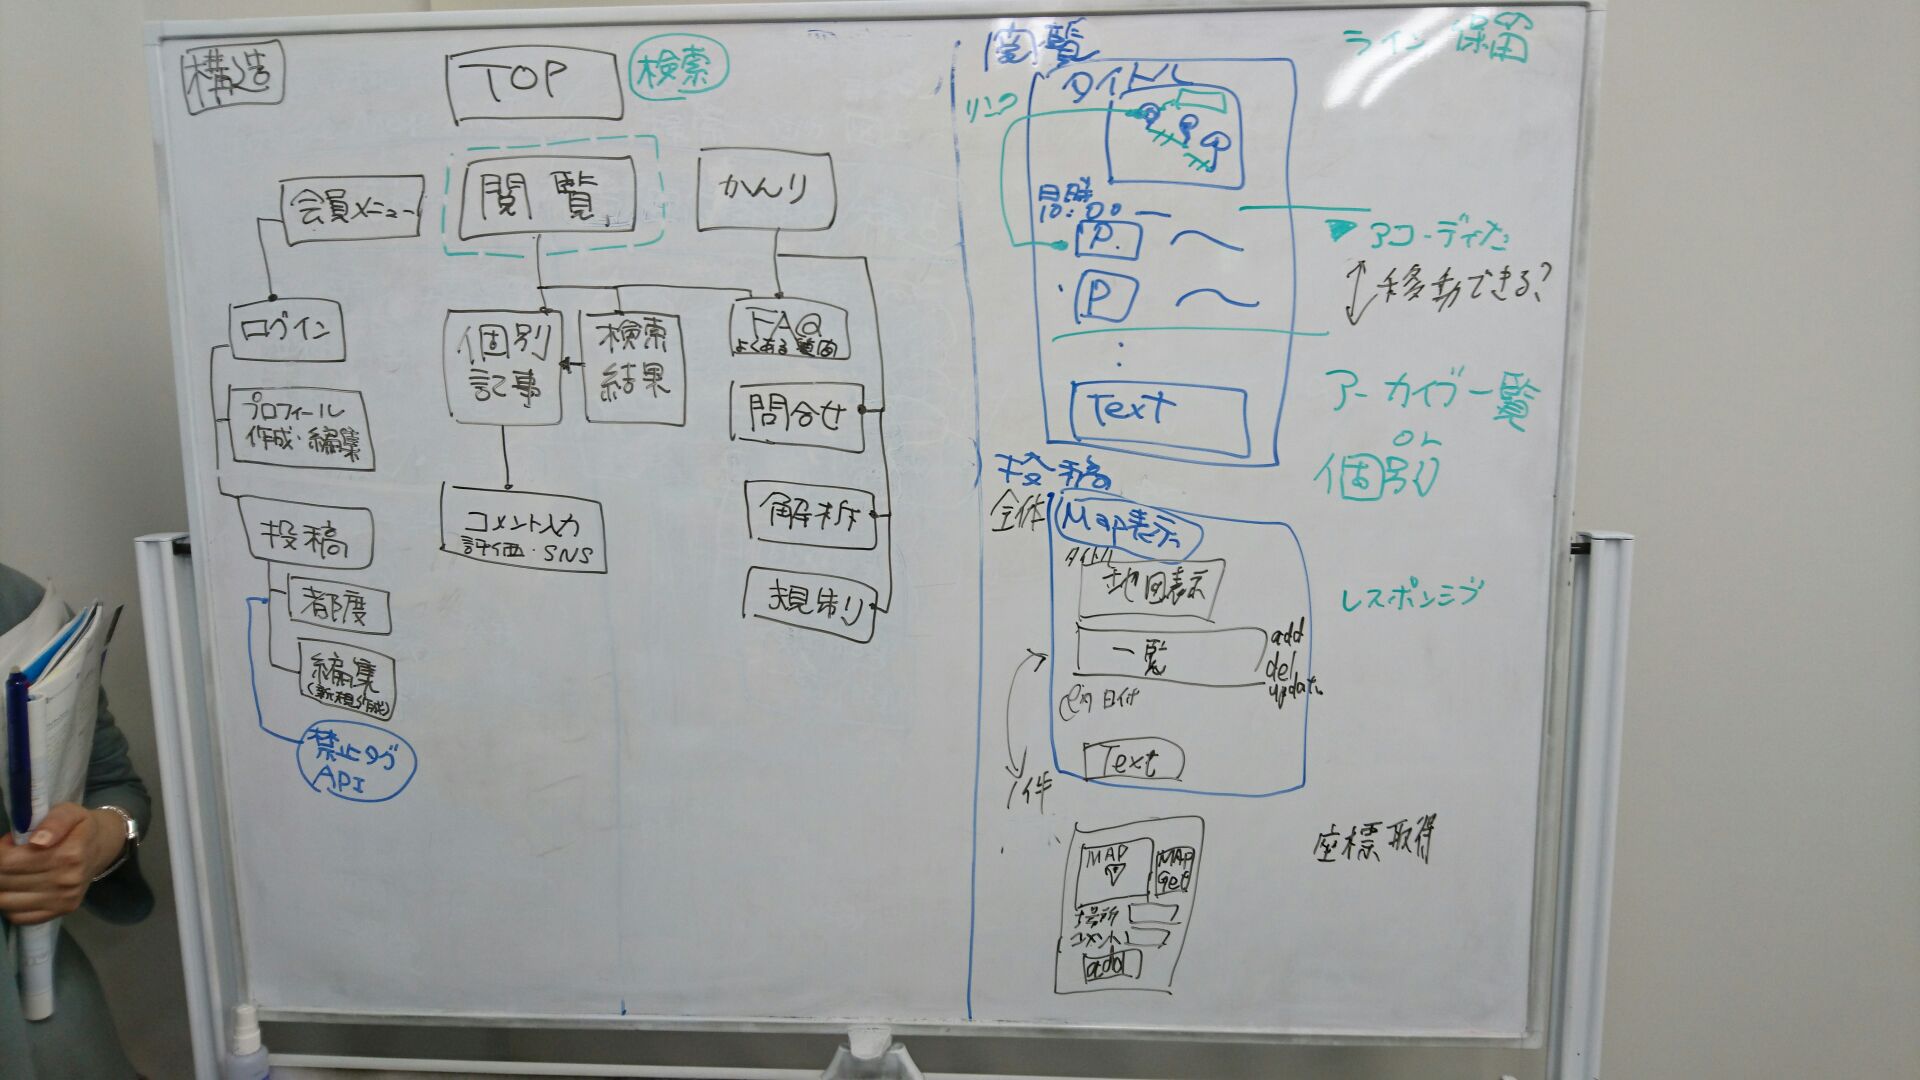 構造
TOP
検索
会員メニュー
閲覧
かんり
ログイン
プロフィール
作成・編集
投稿
都度
編集
(新規作成)
禁止タグ
API
個別
記事
検索
結果
コメント入力
評価・SNS
FAQ
よくある質問
問合せ
解析
規制り
閲覧
ライン 保留
タイトル
リンク
日時
10:00
P.
P
Text
アコーディオン
移動できる?
アーカイブ一覧
or
個別
投稿
全体
Map表示
タイトル
地図表示
一覧
add
del
update
日付
Text
1件
レスポンシブ
MAP
MAP
Get
場所
コメント
add
座標取得